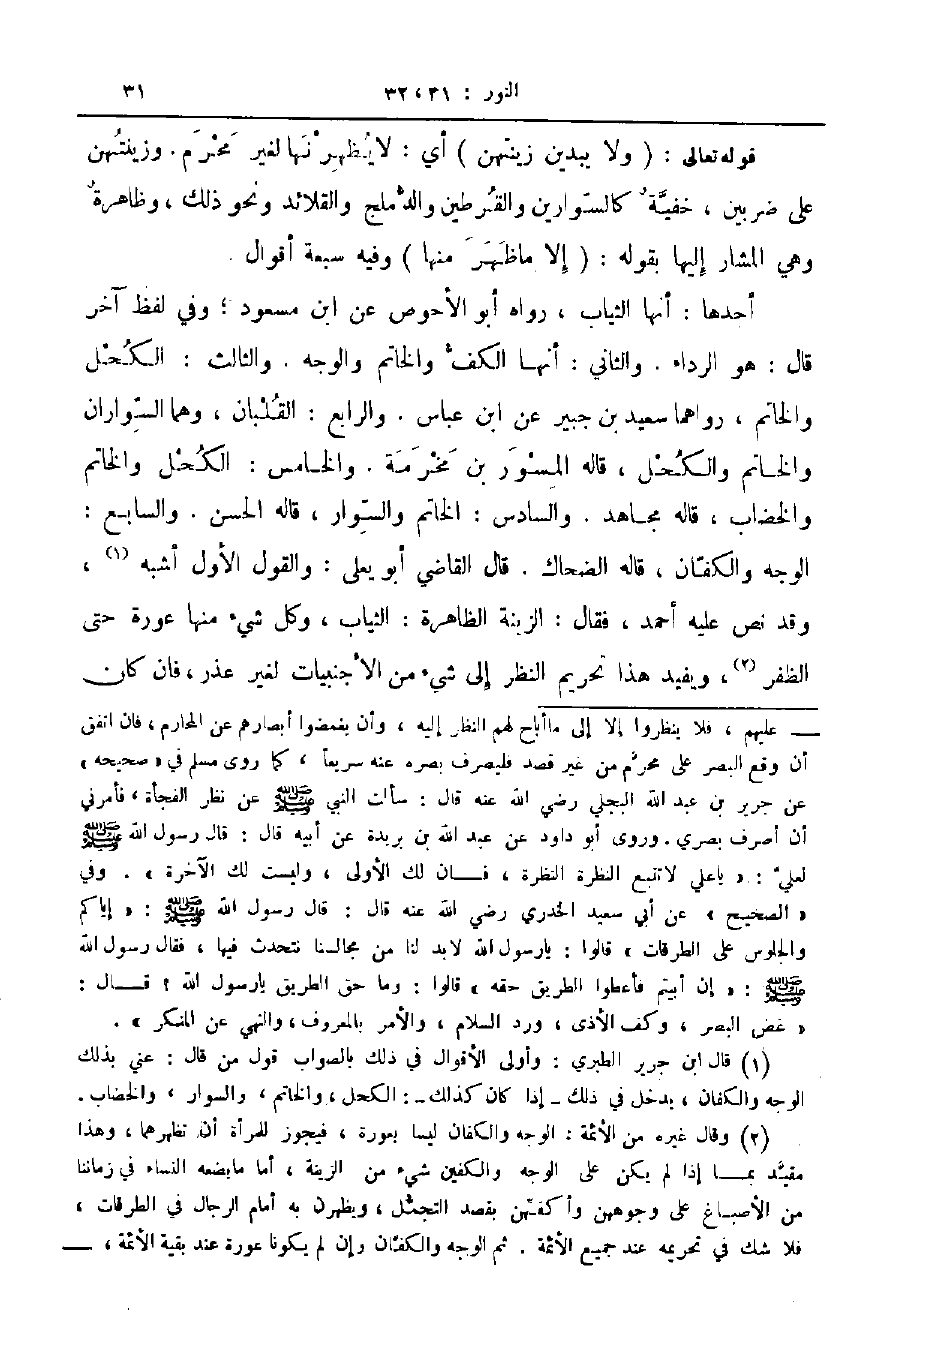 النور : ٣١ ، ٣٢ ٣١
قوله تعالى : ( ولا يبدين زينتهن ) أي : لا يُظْهِرْنَها لغير مَحْرَم . وزينتُهن
على ضربين ، خفيَّة كالسِّوارين والقُرطين والدُّملج والقلائد ونحو ذلك ، وظاهرةٌ
وهي المشار إليها بقوله : ( إلا ماظَهَرَ منها ) وفيه سبعة أقوال .
أحدها : أنها الثياب ، رواه أبو الأحوص عن ابن مسعود ؛ وفي لفظ آخر
قال : هو الرداء . والثاني : أنهـا الكفُّ والخاتم والوجه . والثالث : الكُحْل
والخاتم ، رواهما سعيد بن جبير عن ابن عباس . والرابع : القُلْبان ، وهما السِّواران
والخـاتم والكُحْل ، قاله المِسْوَر بن مَخْرَمَة . والخـامس : الكُحْل والخاتم
والخضاب ، قاله مجـاهد . والسادس : الخاتم والسِّوار ، قاله الحسن . والسابـع :
الوجه والكفَّان ، قاله الضحاك . قال القاضي أبو يعلى : والقول الأول أشبه (١) ،
وقد نص عليه أحمد ، فقال : الزينة الظاهرة : الثياب ، وكل شيء منها عورة حتى
الظفر (٢) ، ويفيد هذا تحريم النظر إلى شيء من الأجنبيات لغير عذر ، فان كان
ـــ عليهم ، فلا ينظروا إلا إلى ماأباح لهم النظر إليه ، وأن يغمضوا أبصارهم عن المحارم ، فان اتفق
أن وقع البصر على محرَّم من غير قصد فليصرف بصره عنه سريعاً ، كما روى مسلم في « صحيحه »
عن جرير بن عبد الله البجلي رضي الله عنه قال : سألت النبي ﷺ عن نظر الفجأة ، فأمرني
أن أصرف بصري . وروى أبو داود عن عبد الله بن بريدة عن أبيه قال : قال رسول الله ﷺ
لعليّ : « ياعلي لاتتبع النظرة النظرة ، فـــان لك الأولى ، وليست لك الآخرة » . وفي
« الصحيح » عن أبي سعيد الخدري رضي الله عنه قال : قال رسول الله ﷺ : « إياكم
والجلوس على الطرقات » قالوا : يارسول الله لابد لنا من مجالسنا نتحدث فيها ، فقال رسول الله
ﷺ : « إن أبيتم فأعطوا الطريق حقه » قالوا : وما حق الطريق يارسول الله ؟ قـــال :
« غض البصر ، وكف الأذى ، ورد السلام ، والأمر بالمعروف ، والنهي عن المنكر » .
(١) قال ابن جرير الطبري : وأولى الأقوال في ذلك بالصواب قول من قال : عني بذلك
الوجه والكفان ، يدخل في ذلك ـ إذا كان كذلك ـ : الكحل ، والخاتم ، والسوار ، والخضاب .
(٢) وقال غيره من الأئمة : الوجه والكفان ليسا بعورة ، فيجوز للمرأة أن تظهرهما ، وهذا
مقيَّد بمـــا إذا لم يكن على الوجه والكفين شيء من الزينة ، أما مايضعه النساء في زماننا
من الأصبـاغ على وجوههن وأكفّهن بقصد التجمُّل ، ويظهرن به أمام الرجال في الطرقات ،
فلا شك في تحريمه عند جميع الأئمة . ثم الوجه والكفّان وإن لم يكونا عورة عند بقية الأئمة ، ـــ